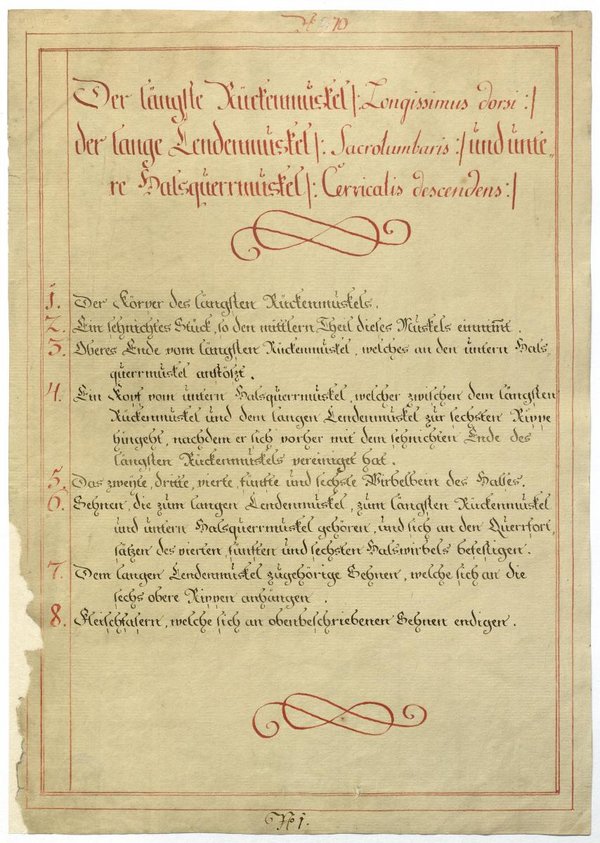 N 70
Der längste Rückenmüskel |: Longissimus dorsi :|
der lange Lendenmüskel |: Sacrolumbaris :| und unte„
re Halsquerrmüskel |: Cervicalis descendens :|
1. Der Körper des längsten Rückenmüskels.
2. Ein sehnichtes Stück, so den mittlern Theil dieses Müskels einnimt.
3. Oberes Ende vom längsten Rückenmüskel, welches an den untern Hals„
querrmüskel anstößt.
4. Ein Kopf vom untern Halsquerrmüskel, welcher zwischen dem längsten
Rückenmüskel und dem langen Lendenmüskel zur sechsten Rippe
hingeht, nachdem er sich vorher mit dem sehnichten Ende des
längsten Rückenmüskels vereiniget hat.
5. Das zweÿte, dritte, vierte, fünfte und sechste Wirbelbein des Halses.
6. Sehnen, die zum langen Lendenmüskel, zum längsten Rückenmüskel
und untern Halsquerrmüskel gehören, und sich an den Querrfort„
sätzen des vierten, fünften und sechsten Halswirbels befestigen.
7. Dem langen Lendenmüskel zugehörige Sehnen, welche sich an die
sechs obere Rippen anhängen.
8. Fleischfasern, welche sich an obenbeschriebenen Sehnen endigen.
N 1.